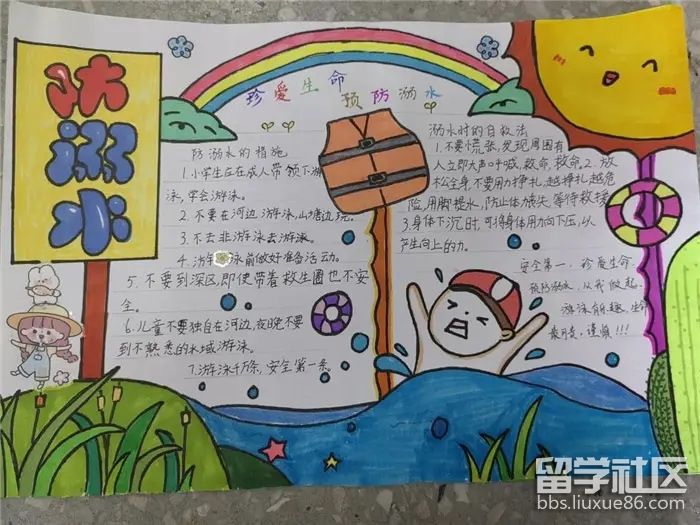 防溺水
珍爱生命
预防溺水
防溺水的措施
1.小学生应在成人带领下游
泳,学会游泳。
2.不要在河边游泳,山塘边玩。
3.不去非游泳去游泳。
4.游泳前做好准备活动。
5.不要到深区,即使带着救生圈也不安
全。
6.儿童不要独自在河边,夜晚不要
到不熟悉的水域游泳。
7.游泳千万条,安全第一条。
溺水时的自救法
1.不要慌张,发现周围有
人立即大声呼喊,救命,救命2.放
松全身,不要用力挣扎,越挣扎越危
险,用脚提水,防止体
等待救援
3.身体下沉时,可将身体用力向下压,以
向上的力。
安全第一,珍爱生命
预防溺水,从我做起
游泳有趣,生命
!!!
留学社区
bbs.liuxue86.com